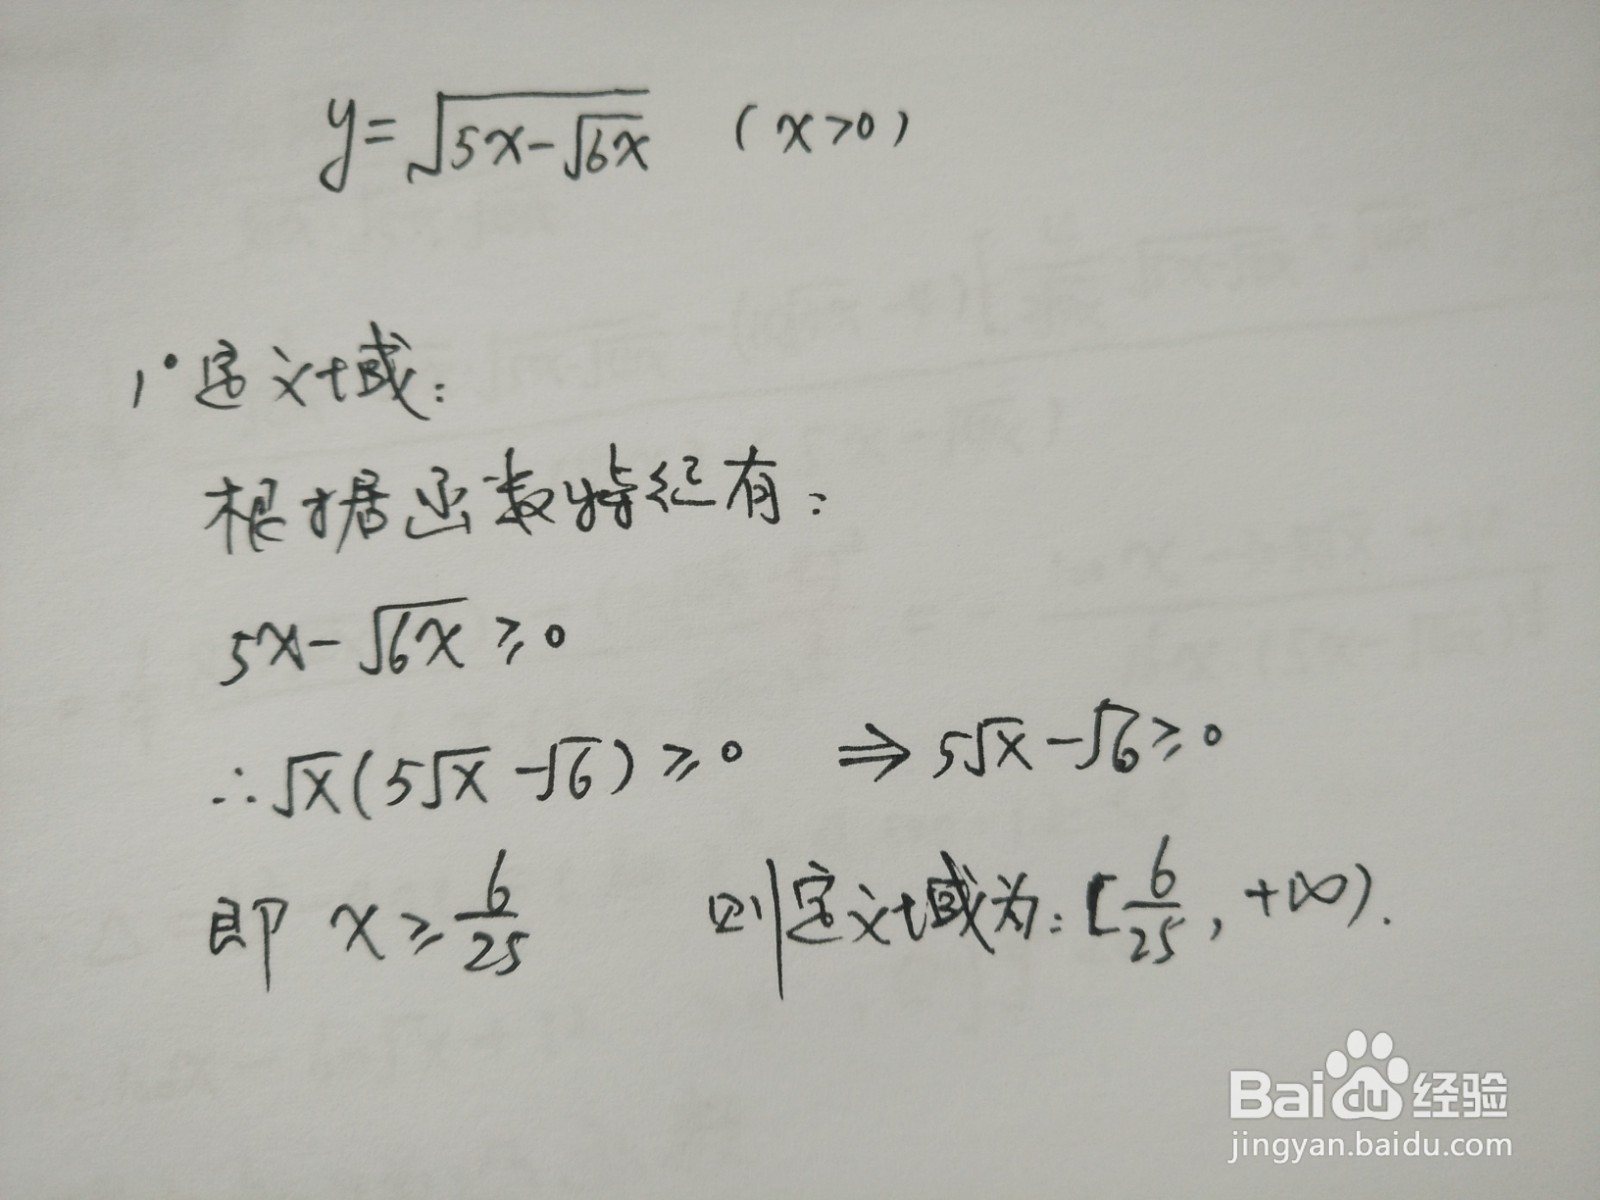 y=√(5x-√(6x)) (x>0)
1°定义域:
根据函数特征有:
5x-√(6x)≥0
∴√x(5√x-√6)≥0 ⇒5√x-√6≥0
即 x≥6/25 则定义域为:[6/25,+∞).
Baidu经验
jingyan.baidu.com